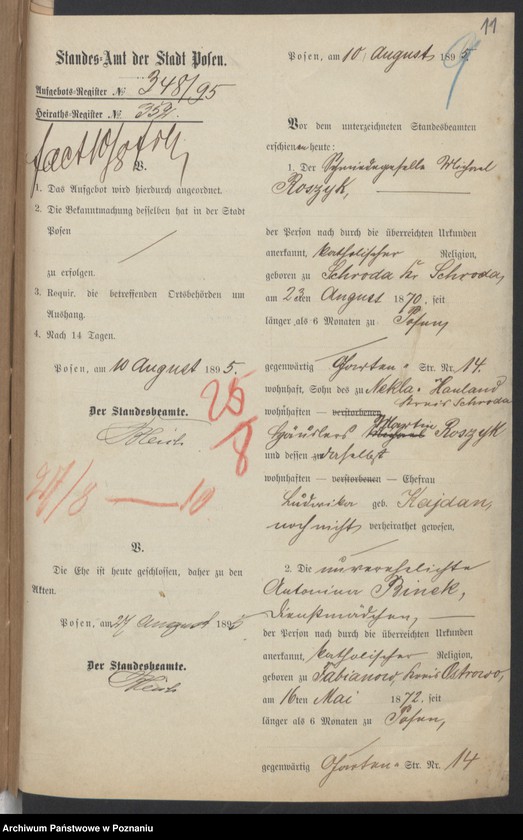 11
9
Standes-Amt der Stadt Posen.
Aufgebots-Register № 348/95
Heiraths-Register № 359.
V.
1. Das Aufgebot wird hierdurch angeordnet.
2. Die Bekanntmachung desselben hat in der Stadt
Posen
zu erfolgen.
3. Requir. die betreffenden Ortsbehörden um
Aushang.
4. Nach 14 Tagen.
Posen, am 10 August 1895.
Der Standesbeamte.
25
8
27/8 — 10
V.
Die Ehe ist heute geschlossen, daher zu den
Akten.
Posen, am 27 August 1895
Der Standesbeamte.
Posen, am 10 August 1895.
Vor dem unterzeichneten Standesbeamten
erschienen heute:
1. Der Schmiedegeselle Michael
Roszyk,
der Person nach durch die überreichten Urkunden
anerkannt, katholischer Religion,
geboren zu Schroda Kr. Schroda,
am 23ten August 1870, seit
länger als 6 Monaten zu Posen,
gegenwärtig Garten- Str. Nr. 14.
wohnhaft, Sohn des zu Nekla-Hauland
Kreis Schroda
wohnhaften — verstorbenen
Häuslers Martin Roszyk
und dessen zu daselbst
wohnhaften — verstorbenen — Ehefrau
Ludwika geb. Kajdan,
noch nicht verheirathet gewesen,
2. Die unverehelichte
Antonina Binek,
Dienstmädchen,
der Person nach durch die überreichten Urkunden
anerkannt, katholischer Religion,
geboren zu Fabianow, Kreis Ostrowo,
am 16ten Mai 1872, seit
länger als 6 Monaten zu Posen,
gegenwärtig Garten- Str. Nr. 14
Archiwum Państwowe w Poznaniu